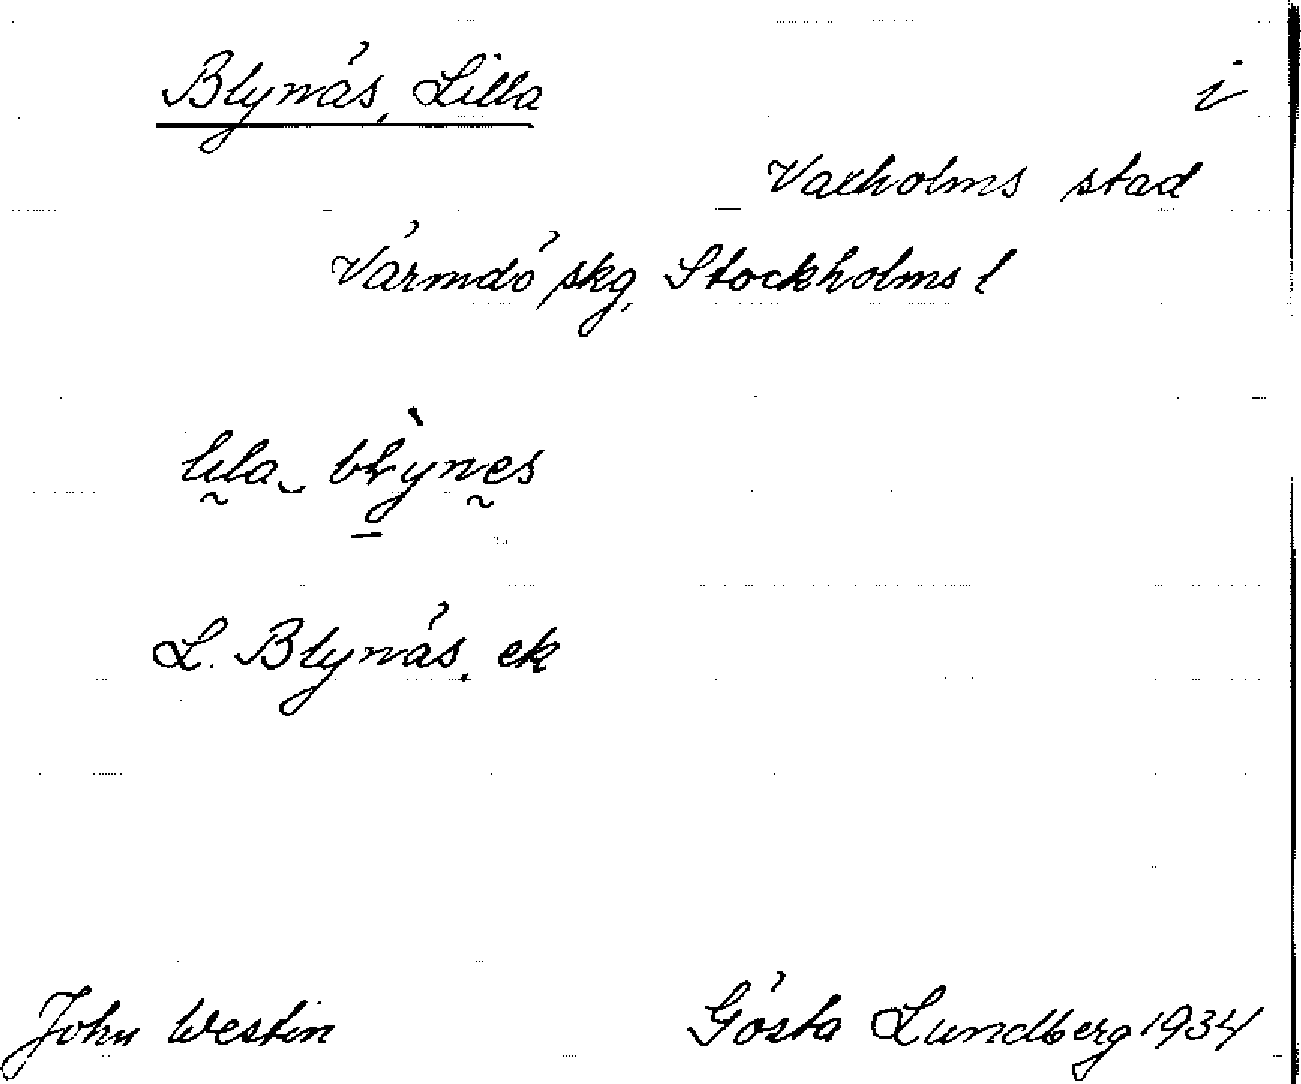 Blynäs, Lilla i
Vaxholms stad
Värmdö skg, Stockholms l
lila blỳnes
L. Blynäs, ek
John Westin Gösta Lundberg 1934